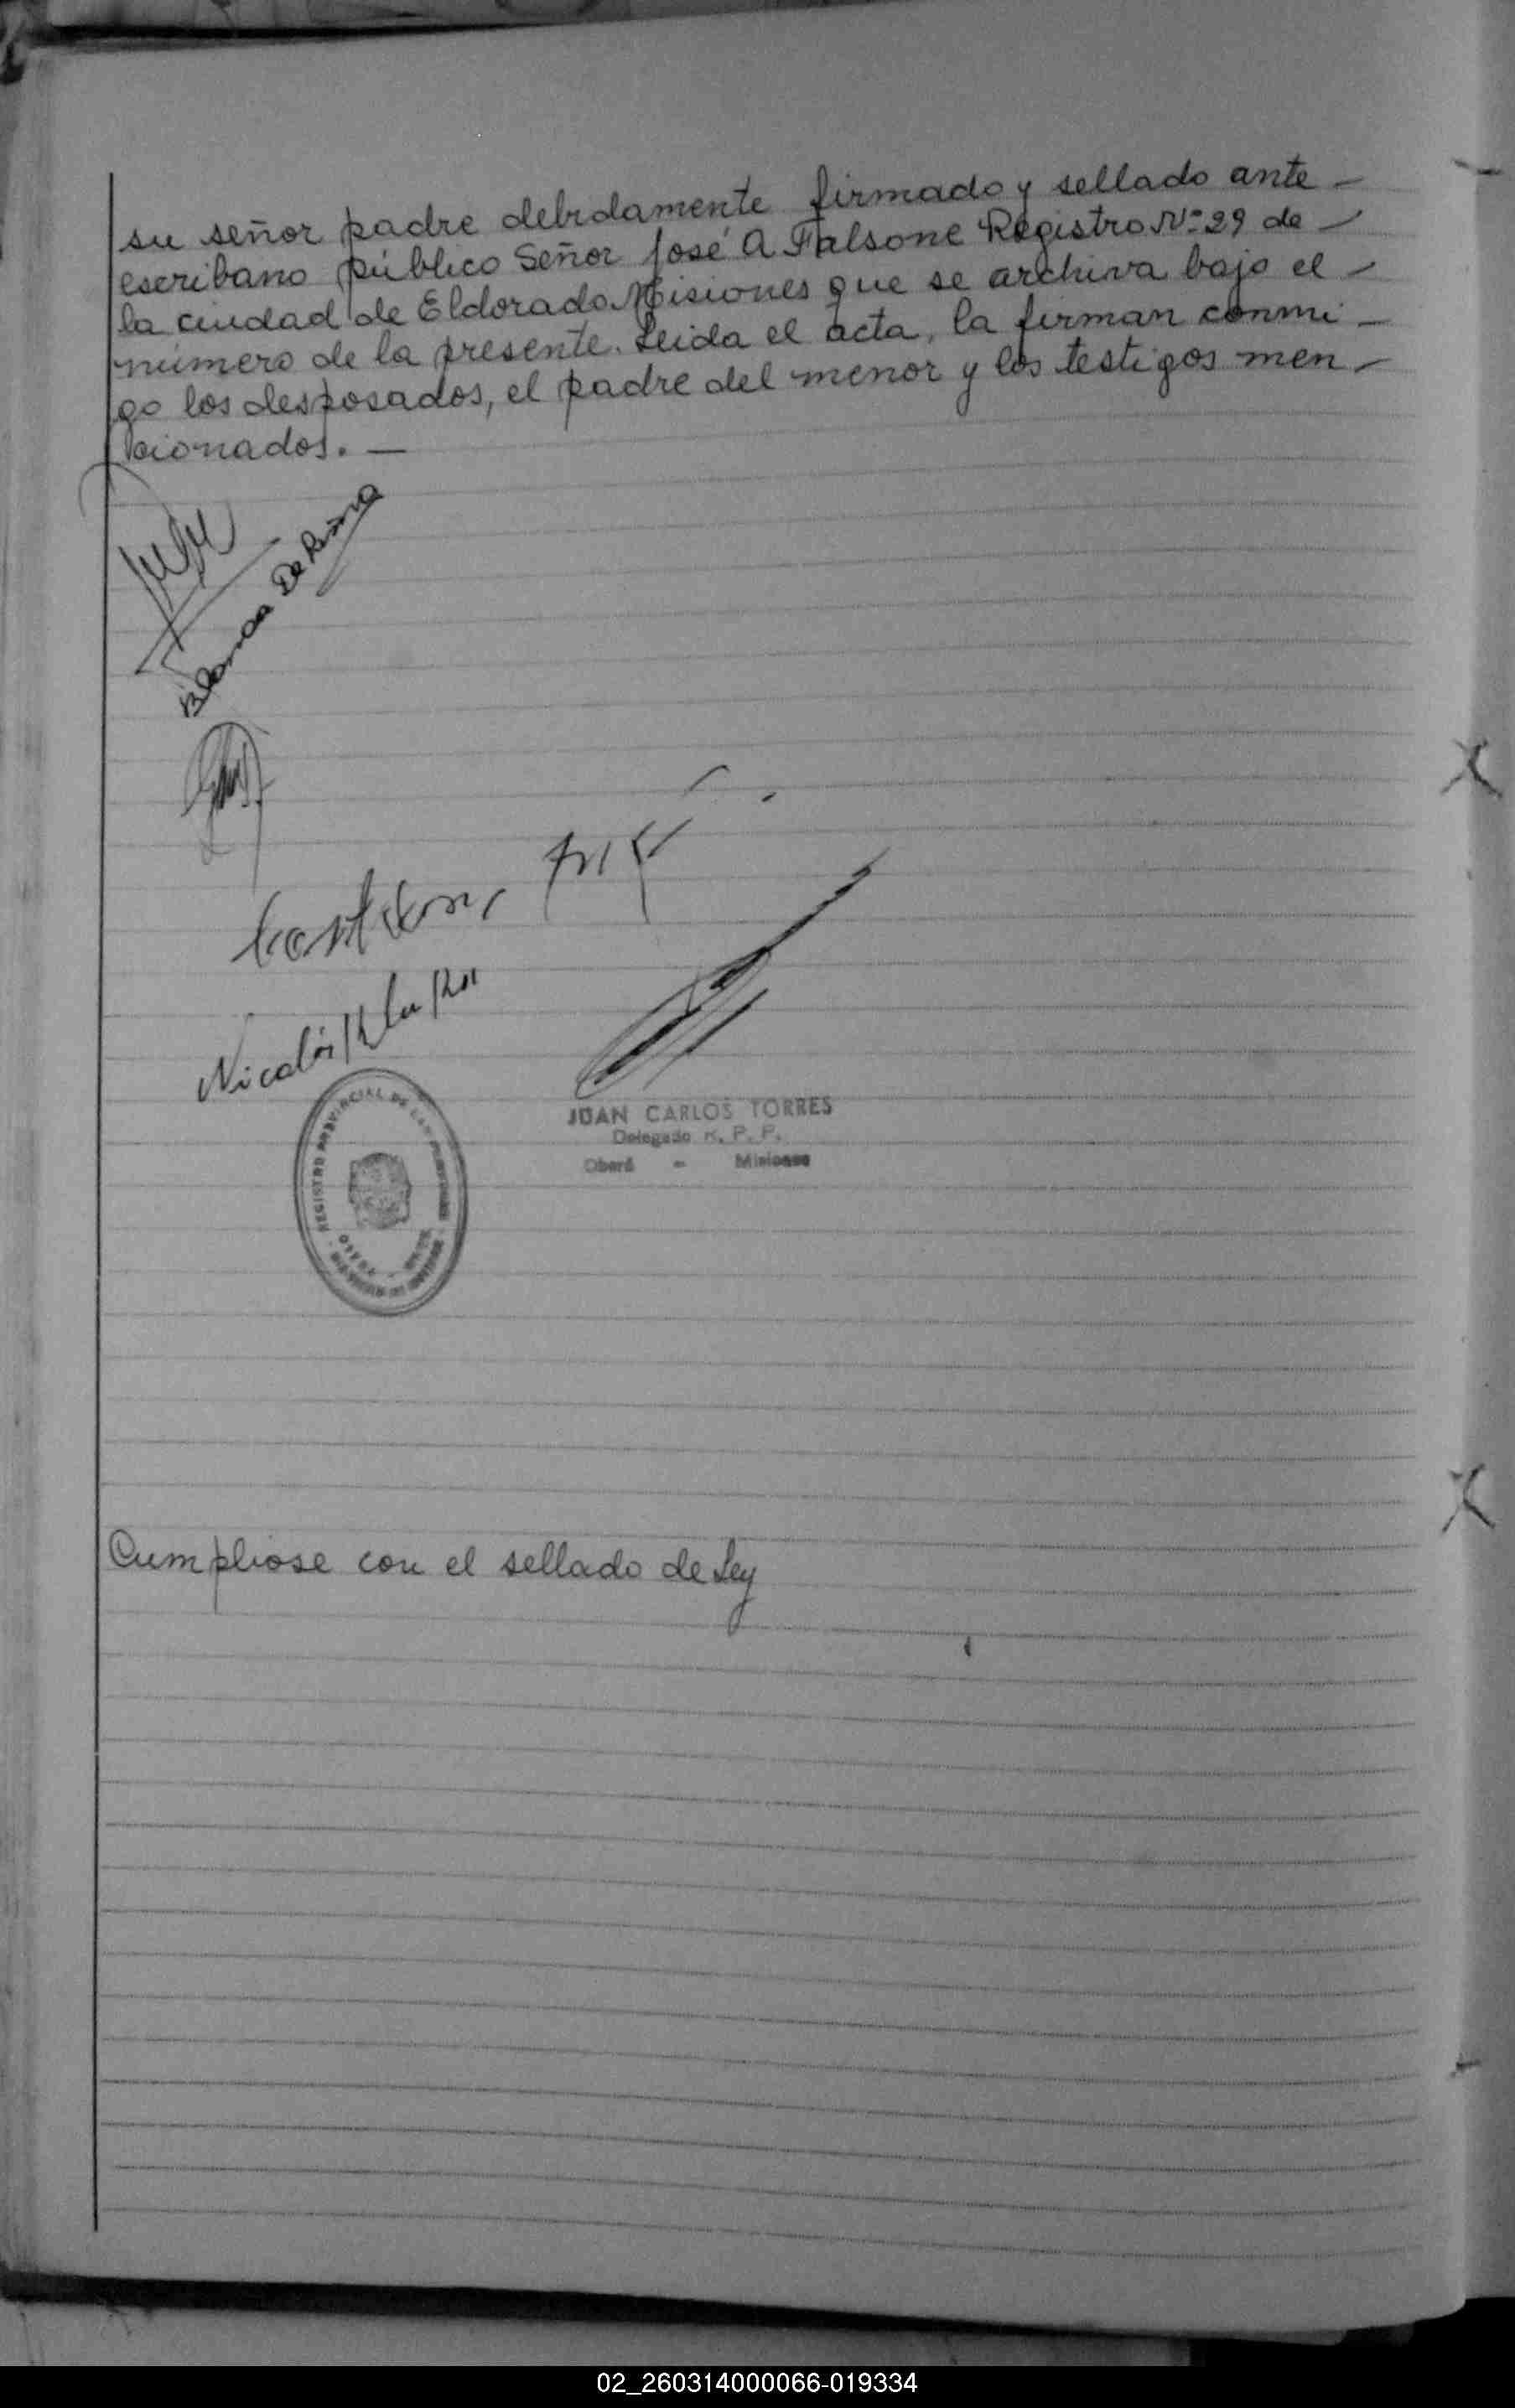 su señor padre debidamente firmado y sellado ante -
escribano público Señor José A Falsone Registro Nº 29 de -
la ciudad de Eldorado Misiones que se archiva bajo el -
número de la presente. Leida el acta, la firman conmi -
go los desposados, el padre del menor y los testigos men -
cionados. -
Blanca
Nicolás
JUAN CARLOS TORRES
Delegado R. P. P.
Oberá - Misiones
REGISTRO PROVINCIAL DE LAS PERSONAS
Cumpliose con el sellado de Ley
02_260314000066-019334